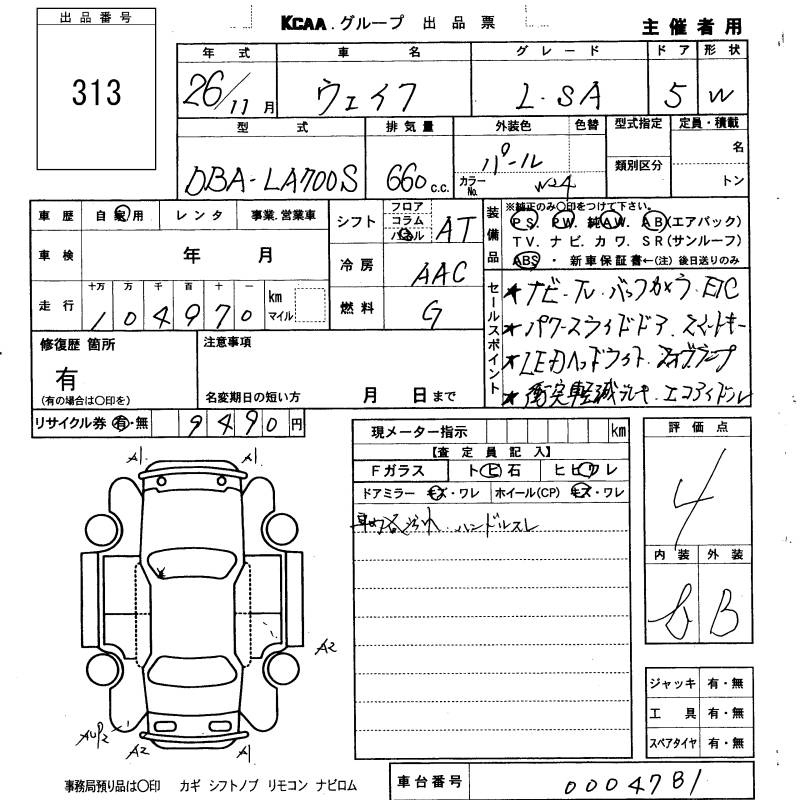 出品番号
313
KCAA.グループ 出品票
主催者用
年式 車名 グレード ドア 形状
26/11月 ウェイク L.SA 5 W
型式 排気量 外装色 色替 型式指定 定員・積載
DBA-LA700S 660 c.c. パール 名
カラーNo. W24 類別区分 トン
車歴 自家用 レンタ 事業.営業車
シフト フロア コラム パネル AT
車検 年 月
冷房 AAC
走行 十万 万 千 百 十 一 km マイル
1 0 4 9 7 0
燃料 G
装備品 ※純正のみ○印をつけて下さい。
PS. PW. 純AW. AB(エアバック)
TV. ナビ. カワ. SR(サンルーフ)
ABS ・ 新車保証書←(注) 後日送りのみ
セールスポイント
★ナビ.TV.バックカメラ.ETC
★パワースライドドア.スマートキー
★LEDヘッドライト.
★衝突軽減ブレーキ.エコアイドル
修復歴 箇所
有
(有の場合は○印を)
注意事項
名変期日の短い方 月 日まで
リサイクル券 有・無 9490円
現メーター指示 km
【査定員記入】
Fガラス トビ石 ヒビワレ
ドアミラー キズ・ワレ ホイール(CP) キズ・ワレ
ハンドルスレ
評価点
4
内装 外装
B B
A1 A1
A2
AUP2
A2 A1
ジャッキ 有・無
工具 有・無
スペアタイヤ 有・無
事務局預り品は○印 カギ シフトノブ リモコン ナビロム
車台番号 0004781